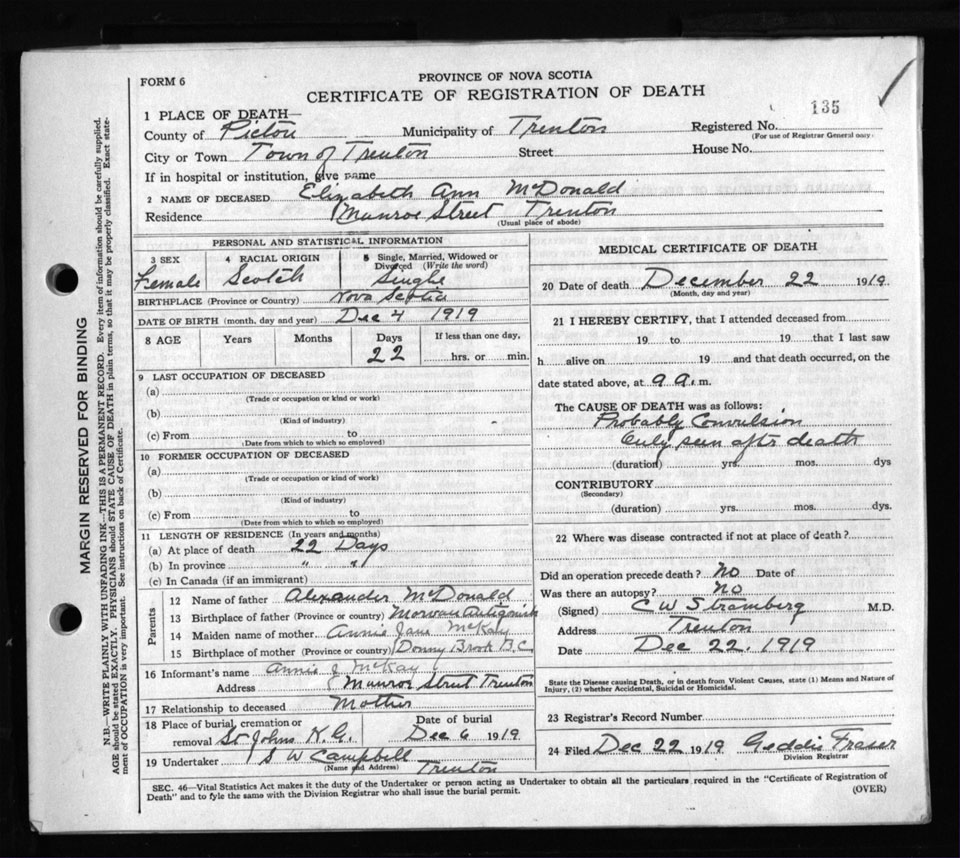 FORM 6
PROVINCE OF NOVA SCOTIA
CERTIFICATE OF REGISTRATION OF DEATH
135
1 PLACE OF DEATH—
County of Pictou Municipality of Trenton Registered No.
(For use of Registrar General only.)
City or Town Town of Trenton Street House No.
If in hospital or institution, give name
2 NAME OF DECEASED Elizabeth Ann McDonald
Residence Munroe Street Trenton
(Usual place of abode)
PERSONAL AND STATISTICAL INFORMATION
3 SEX 4 RACIAL ORIGIN 5 Single, Married, Widowed or Divorced (Write the word)
Female Scotch Single
BIRTHPLACE (Province or Country) Nova Scotia
DATE OF BIRTH (month, day and year) Dec 4 1919
8 AGE Years Months Days If less than one day,
22 hrs. or min.
9 LAST OCCUPATION OF DECEASED
(a)
(Trade or occupation or kind or work)
(b)
(Kind of industry)
(c) From to
(Date from which to which so employed)
10 FORMER OCCUPATION OF DECEASED
(a)
(Trade or occupation or kind of work)
(b)
(Kind of industry)
(c) From to
(Date from which to which so employed)
11 LENGTH OF RESIDENCE (In years and months)
(a) At place of death 22 Days
(b) In province " "
(c) In Canada (if an immigrant)
Parents
12 Name of father Alexander McDonald
13 Birthplace of father (Province or country) Morvan Antigonish
14 Maiden name of mother Annie Jane McKay
15 Birthplace of mother (Province or country) Donny Brook B.C.
16 Informant's name Annie J McKay
Address Munroe Street Trenton
17 Relationship to deceased Mother
18 Place of burial, cremation or removal St Johns N.G. Date of burial Dec 6 1919
19 Undertaker S W Campbell
(Name and Address) Trenton
MEDICAL CERTIFICATE OF DEATH
20 Date of death December 22 1919.
(Month, day and year)
21 I HEREBY CERTIFY, that I attended deceased from
19 to 19 that I last saw
h alive on 19 and that death occurred, on the
date stated above, at 9 a. m.
The CAUSE OF DEATH was as follows:
Probably Convulsion
Only seen after death
(duration) yrs. mos. dys
CONTRIBUTORY
(Secondary)
(duration) yrs. mos. dys.
22 Where was disease contracted if not at place of death?
Did an operation precede death? No Date of
Was there an autopsy? No
(Signed) C W Stramberg M.D.
Address Trenton
Date Dec 22. 1919
State the Disease causing Death, or in death from Violent Causes, state (1) Means and Nature of
Injury, (2) whether Accidental, Suicidal or Homicidal.
23 Registrar's Record Number
24 Filed Dec 22 1919 Geddis Fraser
Division Registrar
SEC. 46—Vital Statistics Act makes it the duty of the Undertaker or person acting as Undertaker to obtain all the particulars required in the "Certificate of Registration of
Death" and to fyle the same with the Division Registrar who shall issue the burial permit.
(OVER)
MARGIN RESERVED FOR BINDING
N.B.—WRITE PLAINLY WITH UNFADING INK—THIS IS A PERMANENT RECORD. Every item of information should be carefully supplied.
AGE should be stated EXACTLY. PHYSICIANS should STATE CAUSE OF DEATH in plain terms, so that it may be properly classified. Exact state-
ment of OCCUPATION is very important. See instructions on back of Certificate.